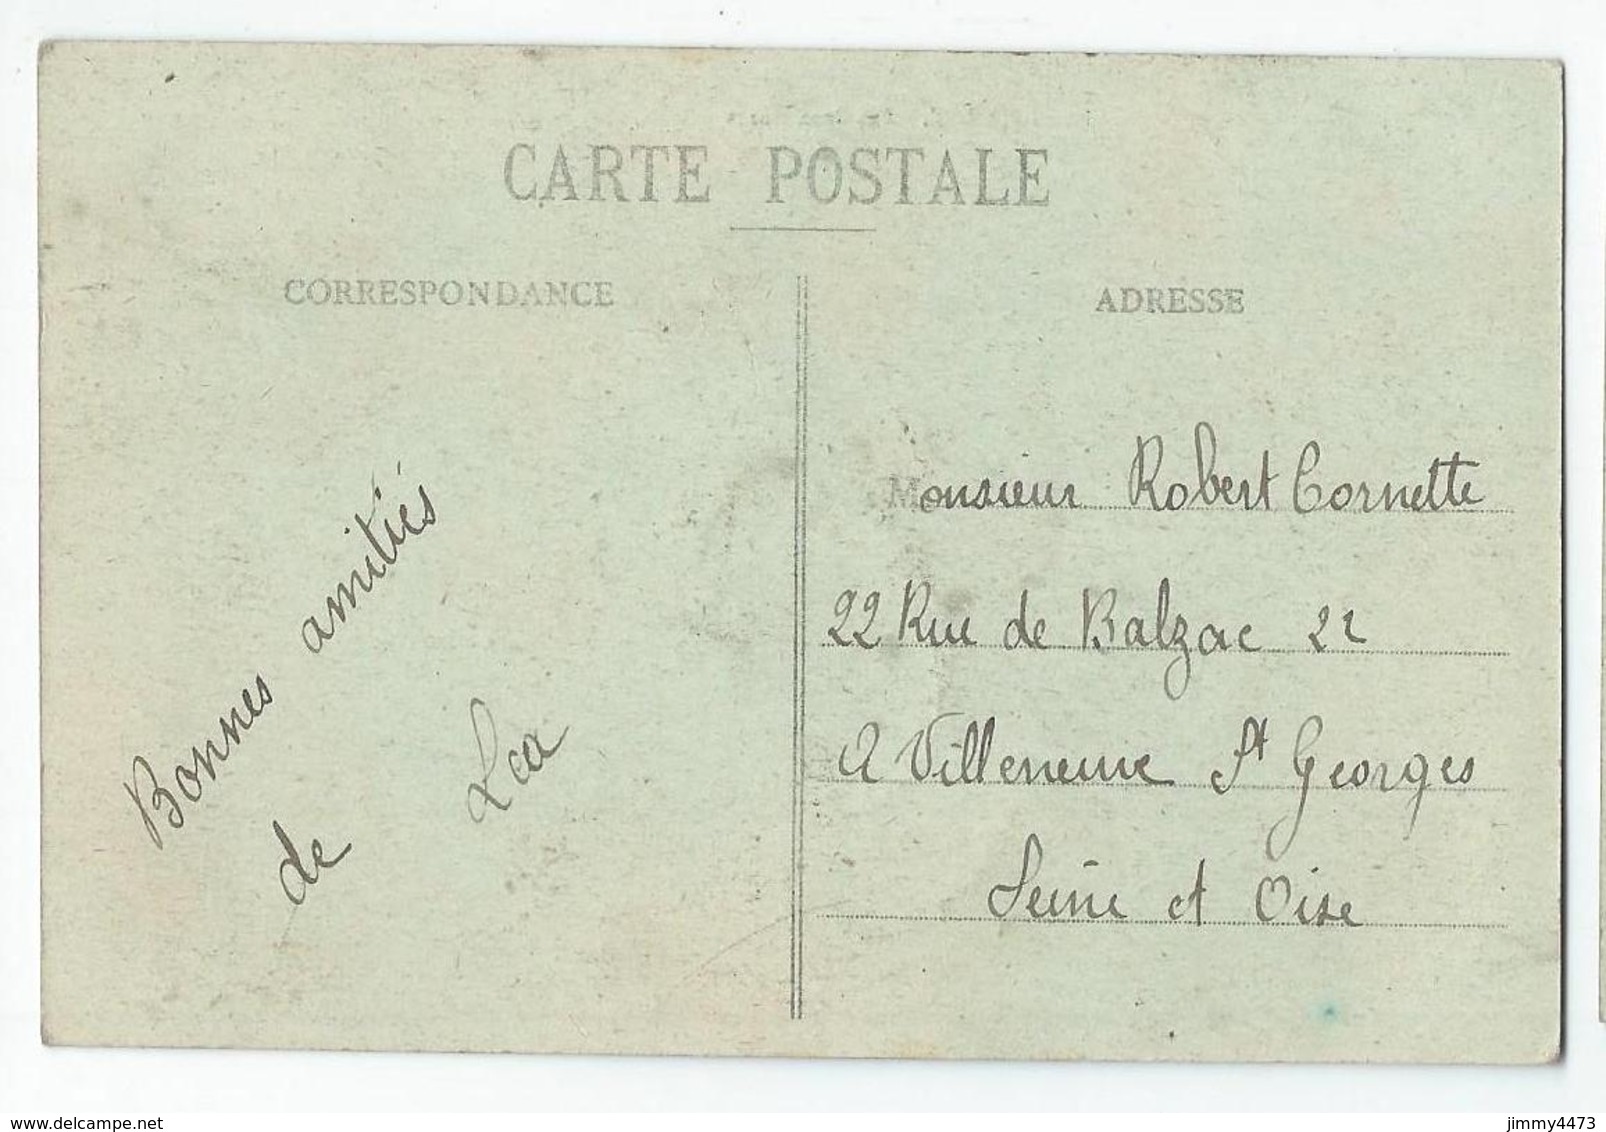 CARTE POSTALE
CORRESPONDANCE
ADRESSE
Bonnes amitiés
de Lea
Monsieur Robert Cornette
22 Rue de Balzac 22
A Villeneuve St Georges
Seine et Oise
www.delcampe.net
jimmy4473